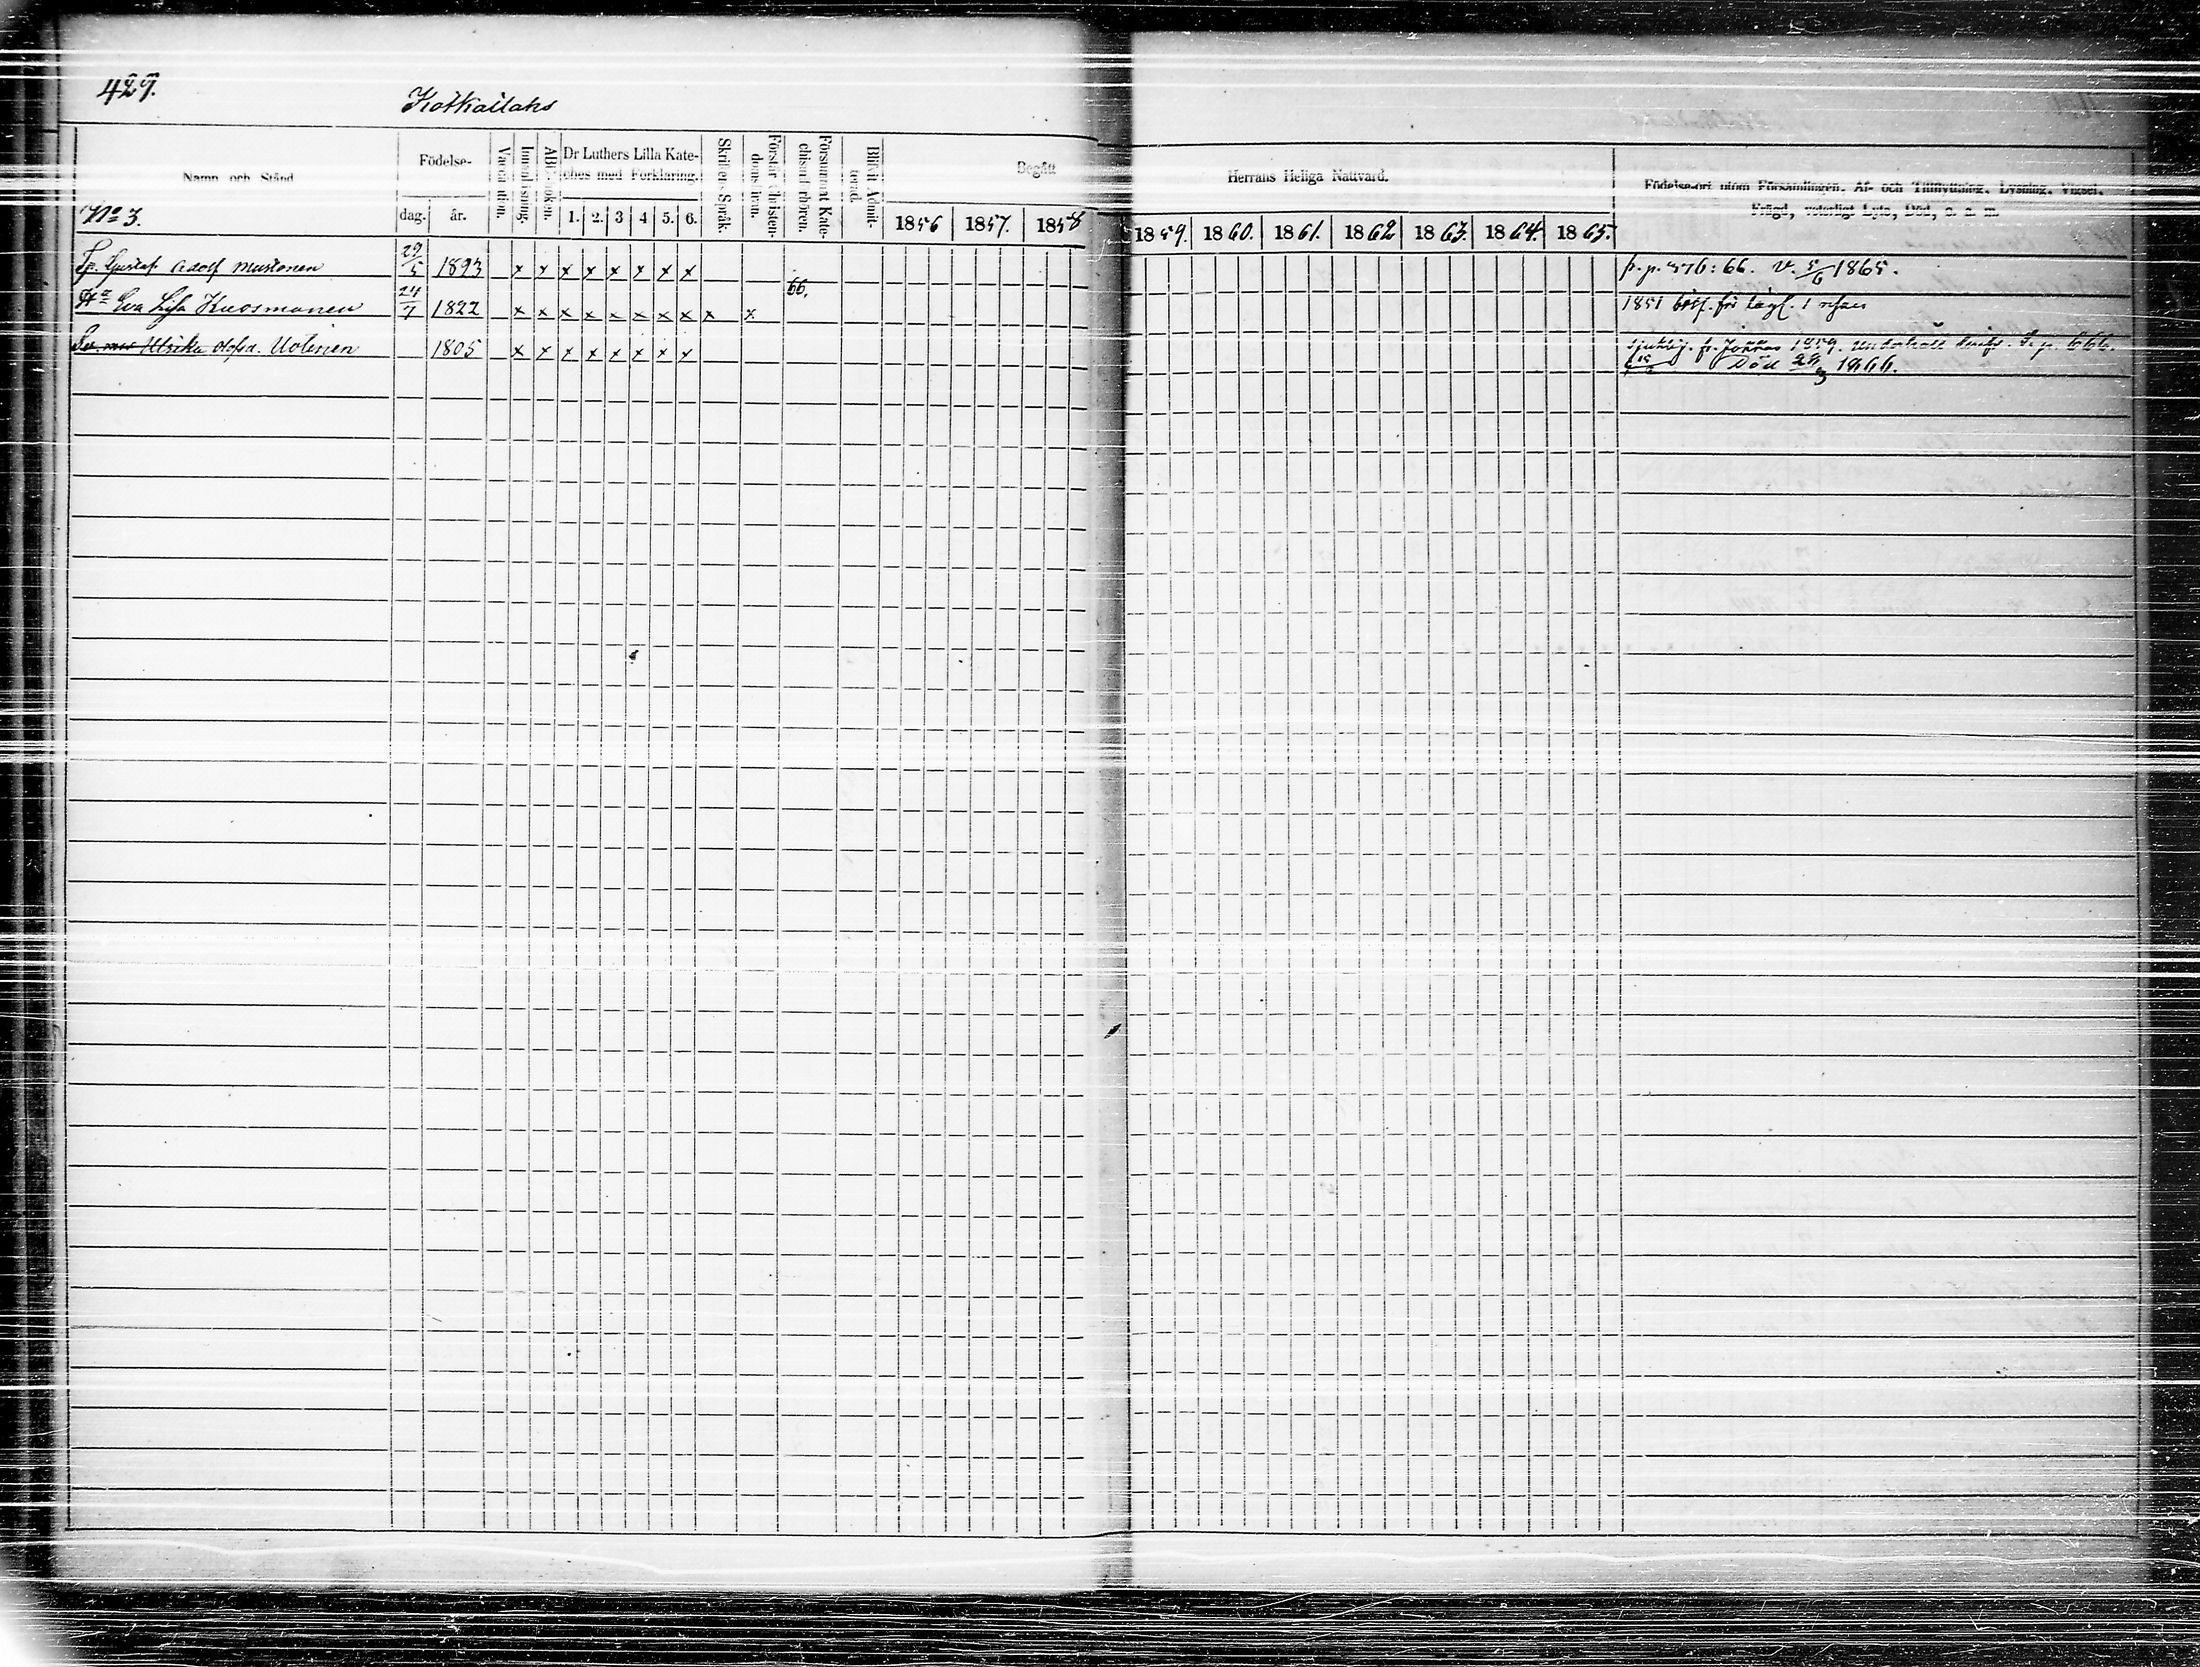 429.
Kotkailahs
Namn och Stånd
Födelse-
dag.
år.
Innanläsning.
ABC-boken.
Dr Luthers Lilla Kate-
ches med Förklaring.
1. 2. 3 4 5. 6.
Skriftens Språk.
Förstår Christen-
doms
Försummat Kate-
chismi förhören.
Blifvit Admit-
terad.
Begått
1856 1857. 1858
Herrans Heliga Nattvard.
1859. 1860. 1861. 1862 1863. 1864. 1865.
Födelse-ort utom Församlingen. Af- och Tillflyttning, Lysning, Vigsel,
Frägd, veterligt Lyte, Död, o. s. m.
No 3.
Sp. Gustaf Adolf Mustonen 29/5 1893 x x x x x x x x p. p. 576: 66. v. 5/6 1865.
Ha Eva Lisa Kuosmanen 24/7 1822 x x x x x x x x x x 66. 1851 för lägr. 1
Ulrika Olofsd. Uotinen 1805 x x x x x x x x fr. Jokkas 1859. p. 666.
Död 28/3 1866.